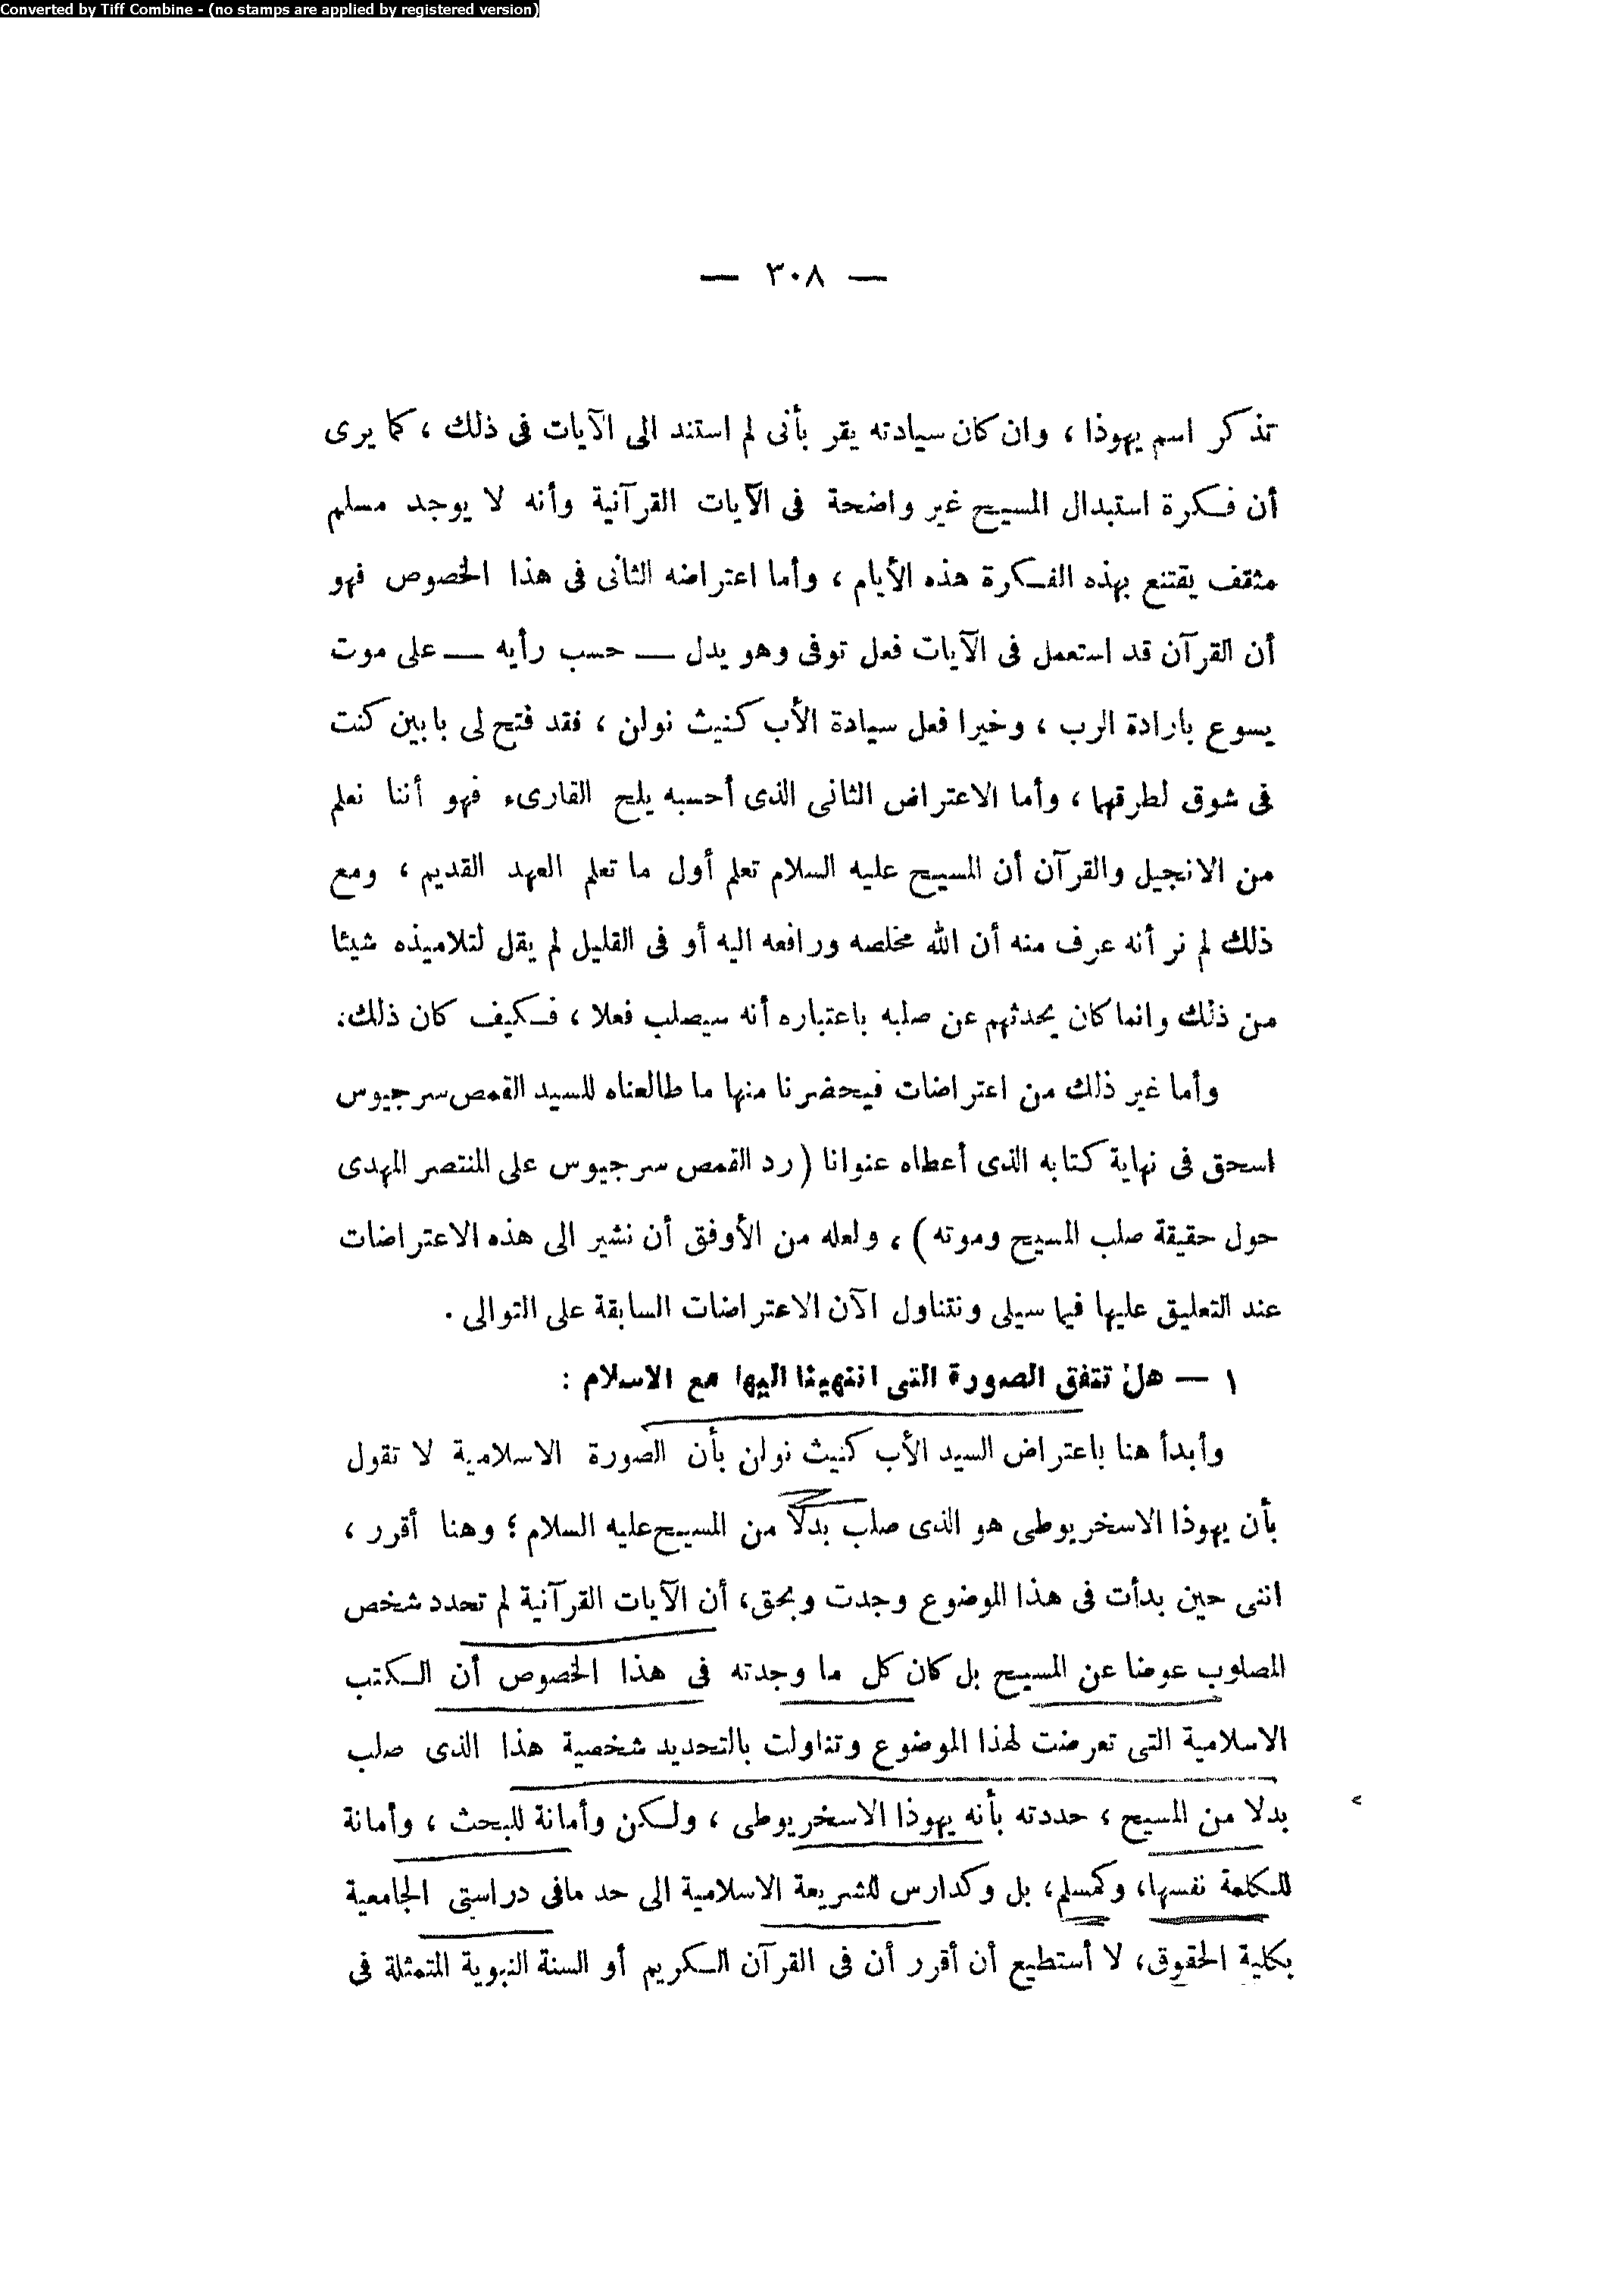 Converted by Tiff Combine - (no stamps are applied by registered version)
— ٣٠٨ —
تذكر اسم يهوذا ، وان كان سيادته يقر بأنى لم استند الى الآيات فى ذلك ، كما يرى
أن فكرة استبدال المسيح غير واضحة فى الآيات القرآنية وأنه لا يوجد مسلم
مثقف يقتنع بهذه الفكرة هذه الأيام ، وأما اعتراضه الثانى فى هذا الخصوص فهو
أن القرآن قد استعمل فى الآيات فعل توفى وهو يدل — حسب رأيه — على موت
يسوع بارادة الرب ، وخيرا فعل سيادة الأب كنيث نولن ، فقد فتح لى بابين كنت
فى شوق لطرقهما ، وأما الاعتراض الثانى الذى أحسبه يلح القارىء فهو أننا نعلم
من الانجيل والقرآن أن المسيح عليه السلام تعلم أول ما تعلم العهد القديم ، ومع
ذلك لم نر أنه عرف منه أن الله مخلصه ورافعه اليه أو فى القليل لم يقل لتلاميذه شيئا
من ذلك وانما كان يحدثهم عن صلبه باعتباره أنه سيصلب فعلا ، فكيف كان ذلك.
وأما غير ذلك من اعتراضات فيحضرنا منها ما طالعناه للسيد القمص سرجيوس
اسحق فى نهاية كتابه الذى أعطاه عنوانا (رد القمص سرجيوس على المنتصر المهدى
حول حقيقة صلب المسيح وموته) ، ولعله من الأوفق أن نشير الى هذه الاعتراضات
عند التعليق عليها فيما سيلى ونتناول الآن الاعتراضات السابقة على التوالى .
١ — هل تتفق الصورة التى انتهينا اليها مع الاسلام :
وأبدأ هنا باعتراض السيد الأب كنيث نولن بأن الصورة الاسلامية لا تقول
بأن يهوذا الاسخريوطى هو الذى صلب بدلا من المسيح عليه السلام ؛ وهنا أقرر ،
اننى حين بدأت فى هذا الموضوع وجدت وبحق، أن الآيات القرآنية لم تحدد شخص
المصلوب عوضا عن المسيح بل كان كل ما وجدته فى هذا الخصوص أن الكتب
الاسلامية التى تعرضت لهذا الموضوع وتناولت بالتحديد شخصية هذا الذى صلب
بدلا من المسيح ، حددته بأنه يهوذا الاسخريوطى ، ولكن وأمانة للبحث ، وأمانة
للكلمة نفسها، وكمسلم، بل وكدارس للشريعة الاسلامية الى حد مافى دراستى الجامعية
بكلية الحقوق، لا أستطيع أن أقرر أن فى القرآن الكريم أو السنة النبوية المتمثلة فى